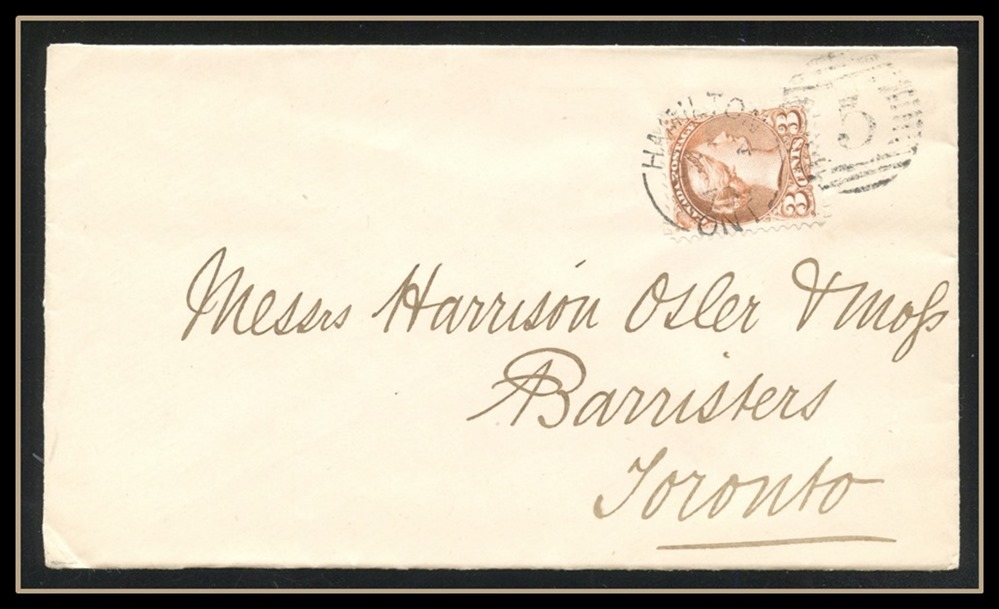 HAMILTON
ONT
5
3
3
Messrs Harrison Osler & Moss
Barristers
Toronto